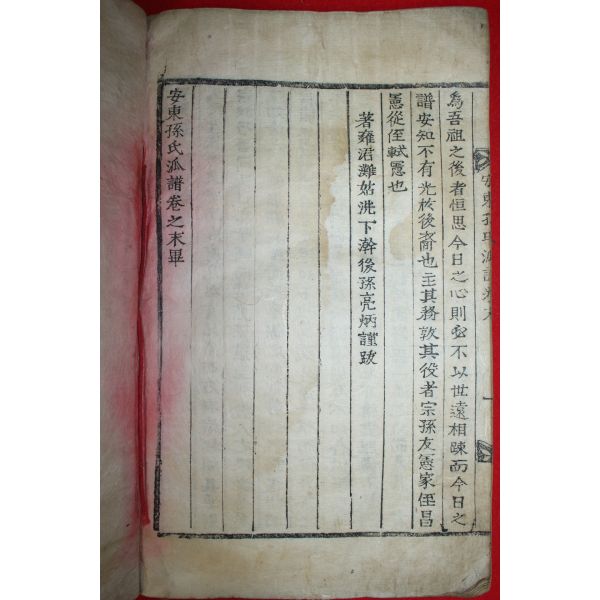 安東孫氏派譜卷
爲吾祖之後者恒思今日之心則必不以世遠相疎而今日之
譜安知不有光於後裔也主其務敦其役者宗孫友憲家侄昌
憲從侄軾憲也
著雍涒灘姑洗下澣後孫亮炳謹跋
安東孫氏派譜卷之末畢